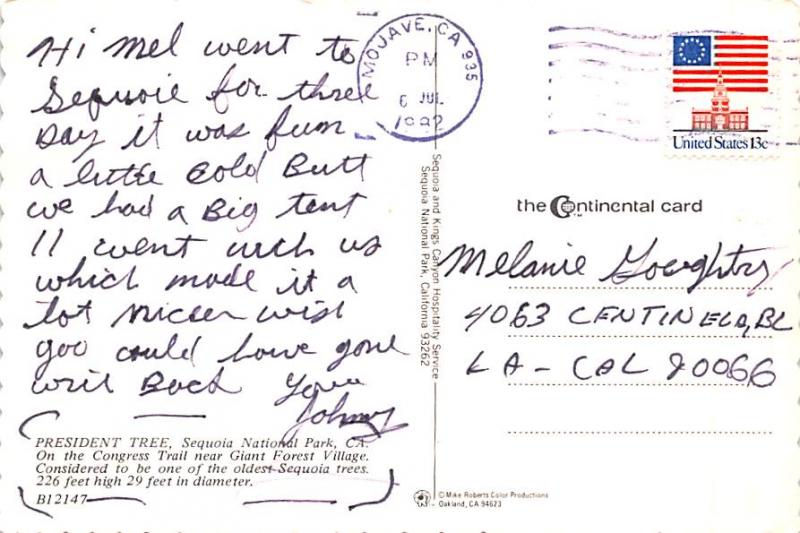 Hi Mel went to
Sequoie for three
Day it was fum
a little Cold Butt
we had a Big tent
11 went with us
which made it a
lot Niceer wish
you could have gone
writ Back Your
Johnny
PRESIDENT TREE, Sequoia National Park, CA.
On the Congress Trail near Giant Forest Village.
Considered to be one of the oldest Sequoia trees.
226 feet high 29 feet in diameter.
B12147
MOJAVE, CA 935
PM
6 JUL
1982
Sequoia and Kings Canyon Hospitality Service
Sequoia National Park, California 93262
© Mike Roberts Color Productions
Oakland, CA 94623
United States 13c
the Continental card
TM
Melanie
4063 CENTINELA, BL
LA - CAL 90066